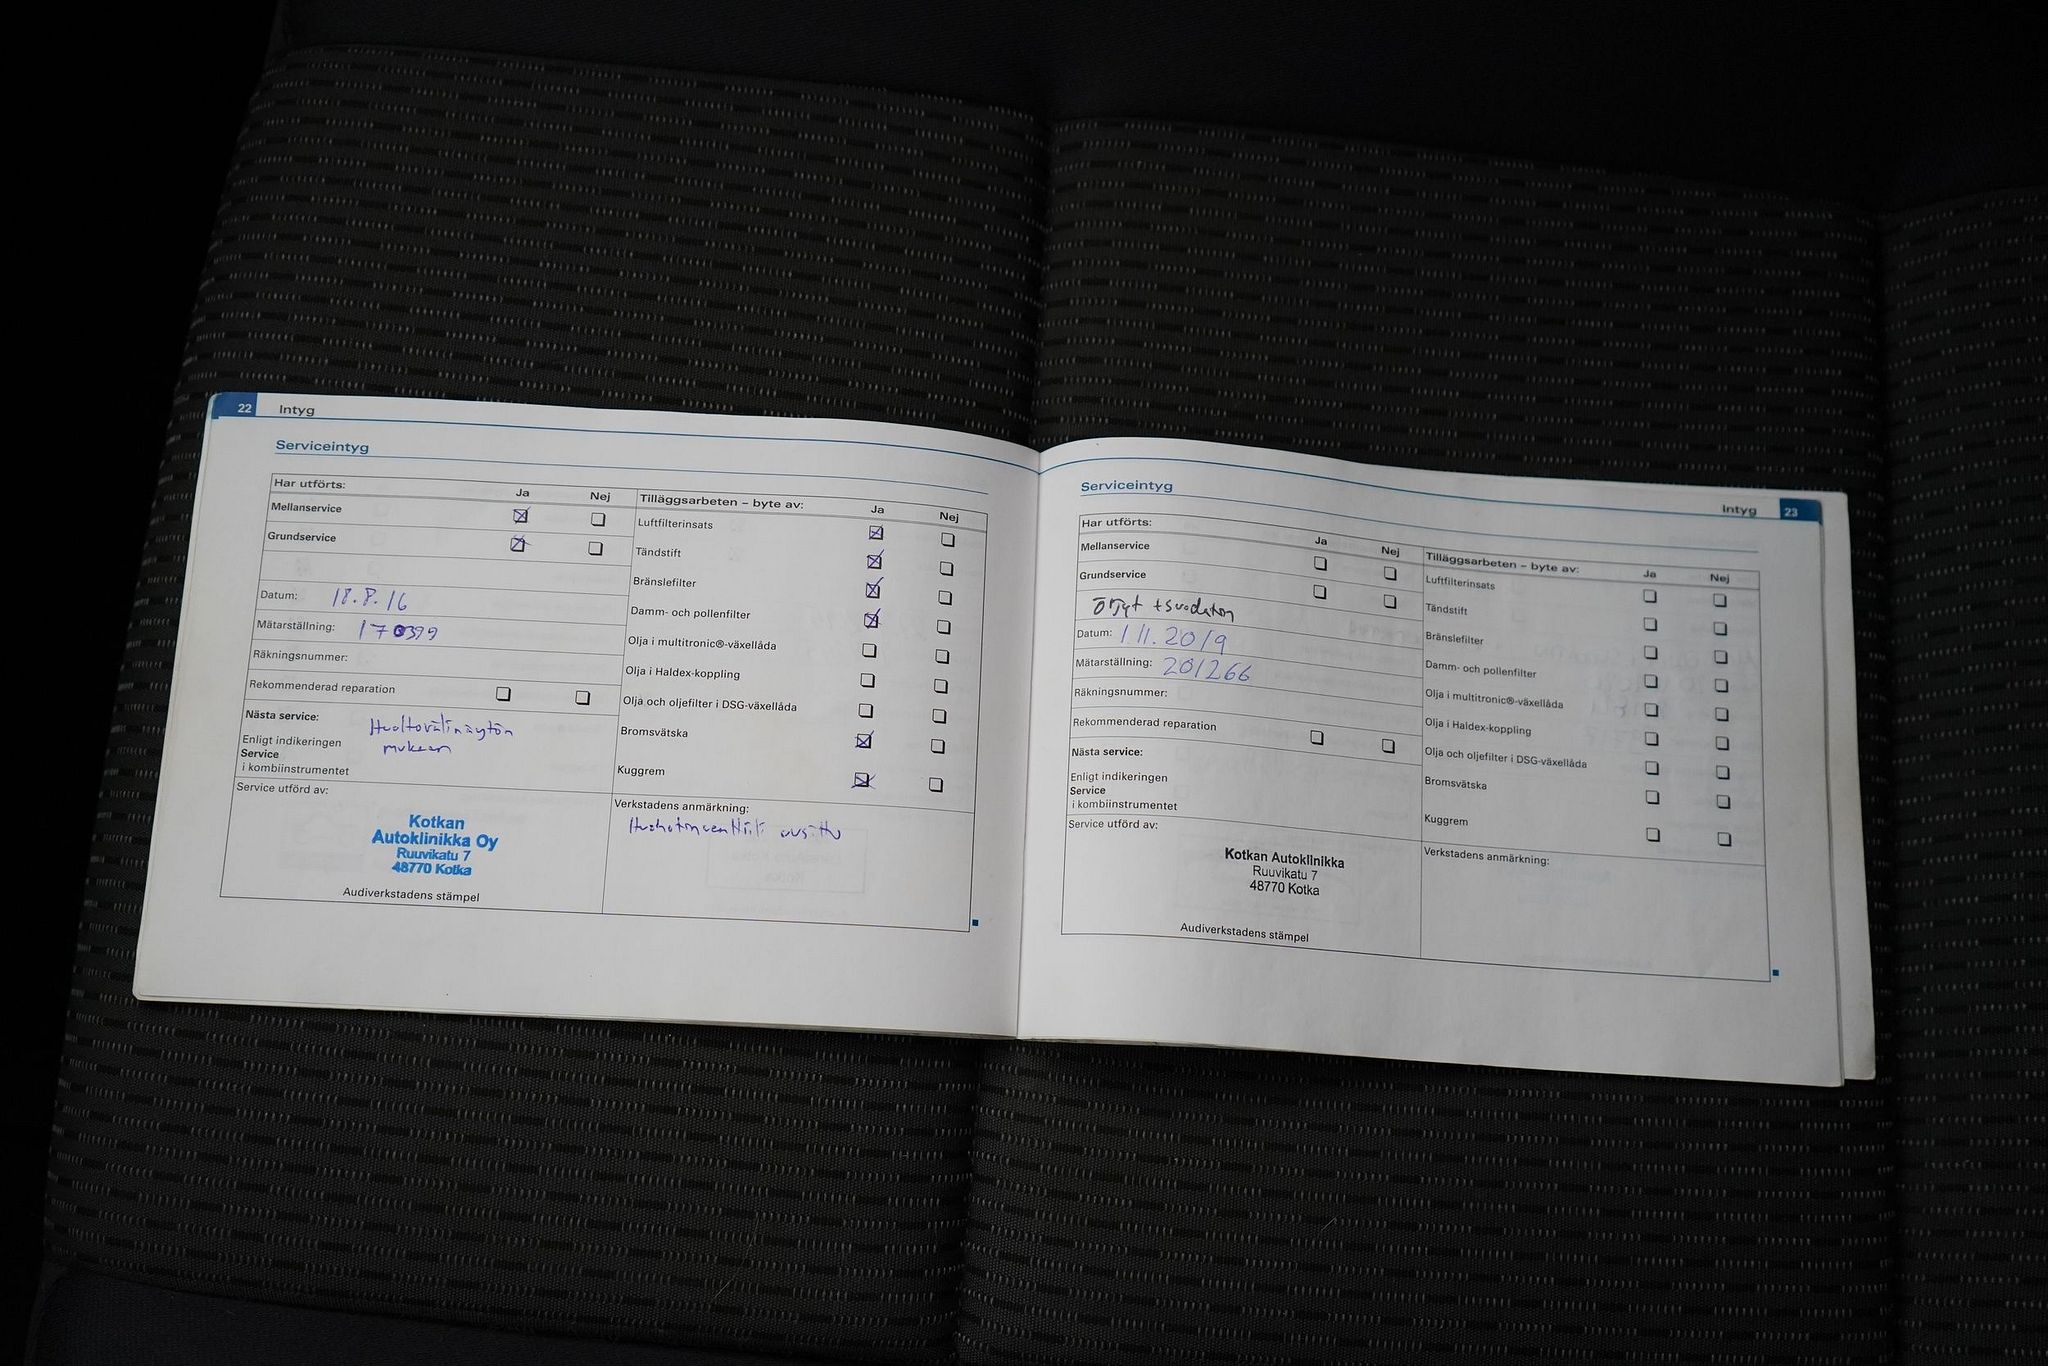 22 Intyg
Serviceintyg
Har utförts: Ja Nej
Mellanservice
Grundservice
Datum: 18.8.16
Mätarställning: 170399
Räkningsnummer:
Rekommenderad reparation
Nästa service: Huoltovälinäytön
mukaan
Enligt indikeringen
Service
i kombiinstrumentet
Service utförd av:
Kotkan
Autoklinikka Oy
Ruuvikatu 7
48770 Kotka
Audiverkstadens stämpel
Tilläggsarbeten – byte av: Ja Nej
Luftfilterinsats
Tändstift
Bränslefilter
Damm- och pollenfilter
Olja i multitronic®-växellåda
Olja i Haldex-koppling
Olja och oljefilter i DSG-växellåda
Bromsvätska
Kuggrem
Verkstadens anmärkning:
uusittu
Intyg 23
Serviceintyg
Har utförts: Ja Nej
Mellanservice
Grundservice
Öljyt + suodatin
Datum: 1.11.2019
Mätarställning: 201266
Räkningsnummer:
Rekommenderad reparation
Nästa service:
Enligt indikeringen
Service
i kombiinstrumentet
Service utförd av:
Kotkan Autoklinikka
Ruuvikatu 7
48770 Kotka
Audiverkstadens stämpel
Tilläggsarbeten – byte av: Ja Nej
Luftfilterinsats
Tändstift
Bränslefilter
Damm- och pollenfilter
Olja i multitronic®-växellåda
Olja i Haldex-koppling
Olja och oljefilter i DSG-växellåda
Bromsvätska
Kuggrem
Verkstadens anmärkning: